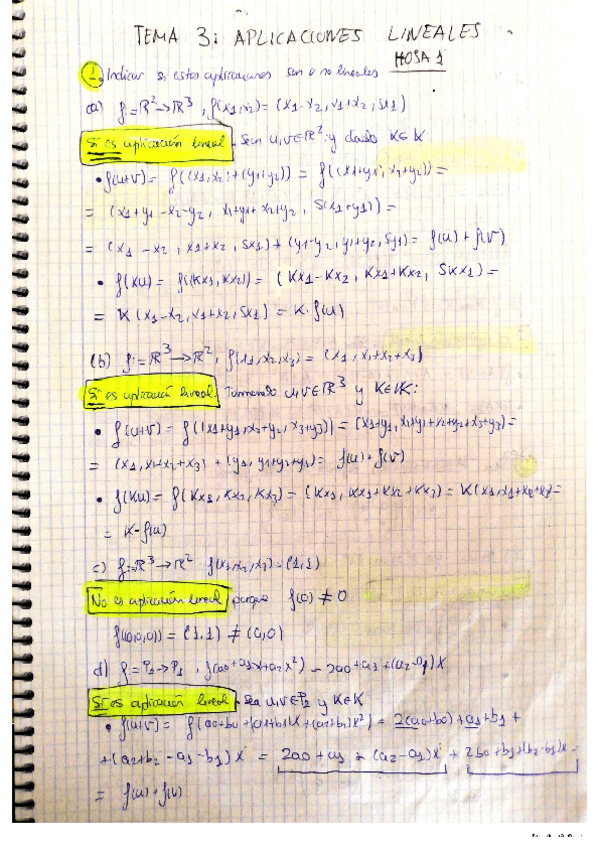 TEMA 3: APLICACIONES LINEALES
HOJA 1
1. Indicar si estas aplicaciones son o no lineales
a) f:=R²→R³, f(x1,x2)=(x1-x2, x1+x2, 5x1)
Si es aplicación lineal. Sean u,v∈R² y dado K∈K
• f(u+v)= f((x1,x2)+(y1,y2)) = f((x1+y1, x2+y2)) =
= (x1+y1-x2-y2, x1+y1+x2+y2, 5(x1+y1)) =
= (x1-x2, x1+x2, 5x1) + (y1-y2, y1+y2, 5y1) = f(u)+f(v)
• f(Ku) = f((Kx1, Kx2)) = (Kx1-Kx2, Kx1+Kx2, 5Kx1) =
= K(x1-x2, x1+x2, 5x1) = K·f(u)
(b) f:=R³→R², f(x1,x2,x3) = (x1, x1+x2+x3)
Si es aplicación lineal. Tomando u,v∈R³ y K∈K:
• f(u+v) = f((x1+y1, x2+y2, x3+y3)) = (x1+y1, x1+y1+x2+y2+x3+y3) =
= (x1, x1+x2+x3) + (y1, y1+y2+y3) = f(u)+f(v)
• f(Ku) = f(Kx1, Kx2, Kx3) = (Kx1, Kx1+Kx2+Kx3) = K(x1, x1+x2+x3) =
= K·f(u)
c) f:=R³→R² f(x1,x2,x3)=(1,1)
No es aplicación lineal, porque f(0) ≠ 0
f((0,0,0)) = (1,1) ≠ (0,0)
d) f:=P2→P1, f(a0+a1x+a2x²) = 2a0+a1+(a2-a1)x
Si es aplicación lineal. Sea u,v∈P2 y K∈K
• f(u+v) = f(a0+b0+(a1+b1)x+(a2+b2)x²) = 2(a0+b0)+a1+b1+
+(a2+b2-a1-b1)x = 2a0+a1+(a2-a1)x + 2b0+b1+(b2-b1)x =
= f(u)+f(v)